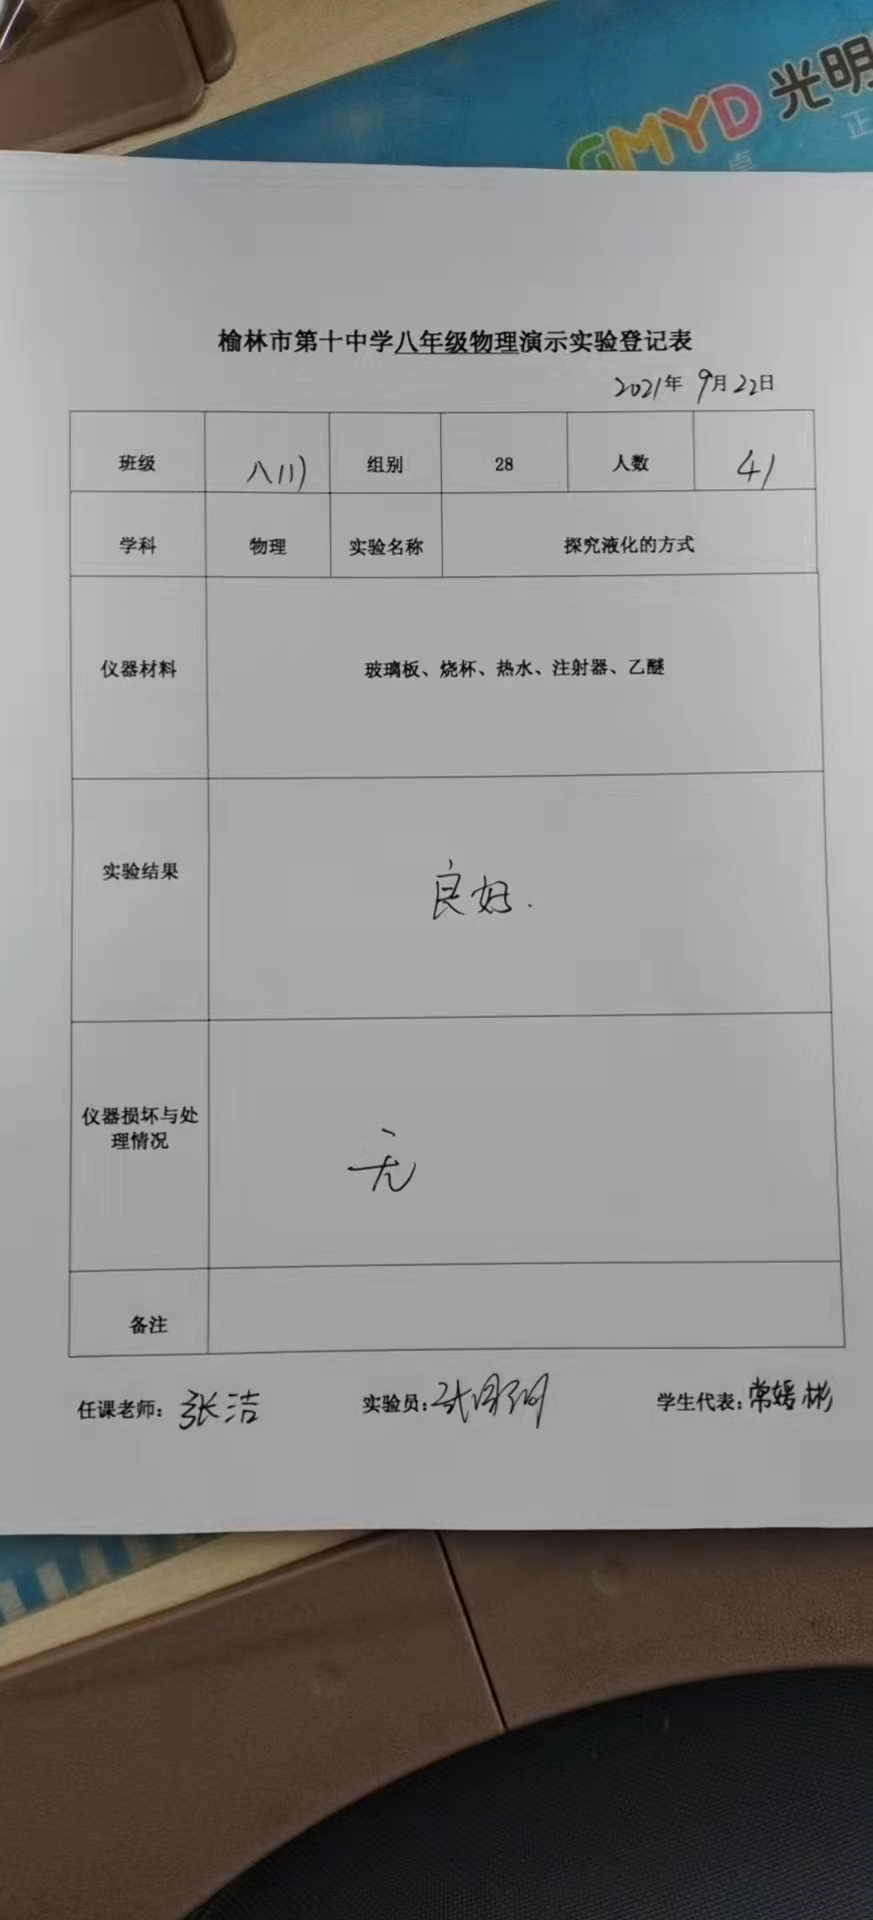 GMYD 光明
正
榆林市第十中学八年级物理演示实验登记表
2021年 9月22日
班级 八(1) 组别 28 人数 41
学科 物理 实验名称 探究液化的方式
仪器材料 玻璃板、烧杯、热水、注射器、乙醚
实验结果 良好.
仪器损坏与处
理情况 无
备注
任课老师: 张洁 实验员: 学生代表: 常媛彬